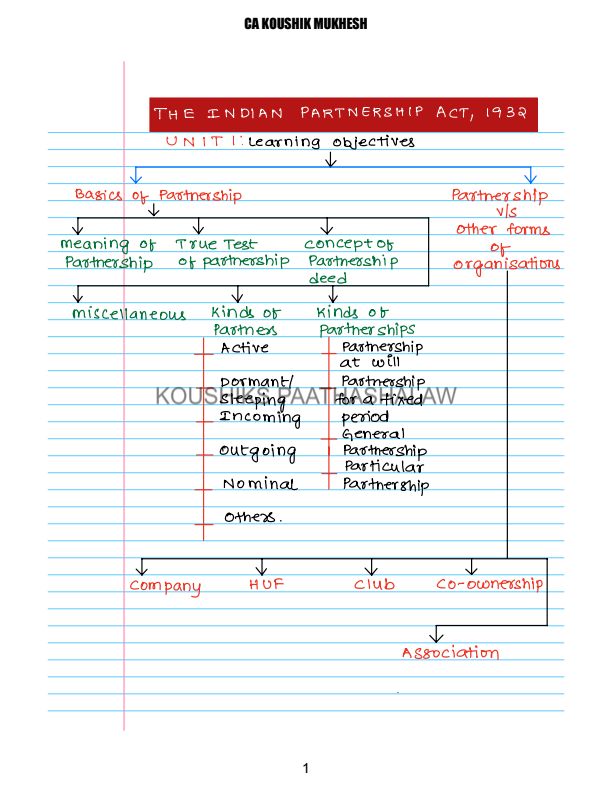 CA KOUSHIK MUKHESH
THE INDIAN PARTNERSHIP ACT, 1932
UNIT 1: Learning objectives
Basics of Partnership
Partnership
v/s
other forms
of
organisations
meaning of
Partnership
True Test
of partnership
concept of
Partnership
deed
miscellaneous
Kinds of
Partners
Active
Dormant/
Sleeping
Incoming
Outgoing
Nominal
Others.
Kinds of
Partnerships
Partnership
at will
Partnership
for a fixed
period
General
Partnership
Particular
Partnership
KOUSHIKS PAATHASHALAW
Company
HUF
Club
Co-ownership
Association
1